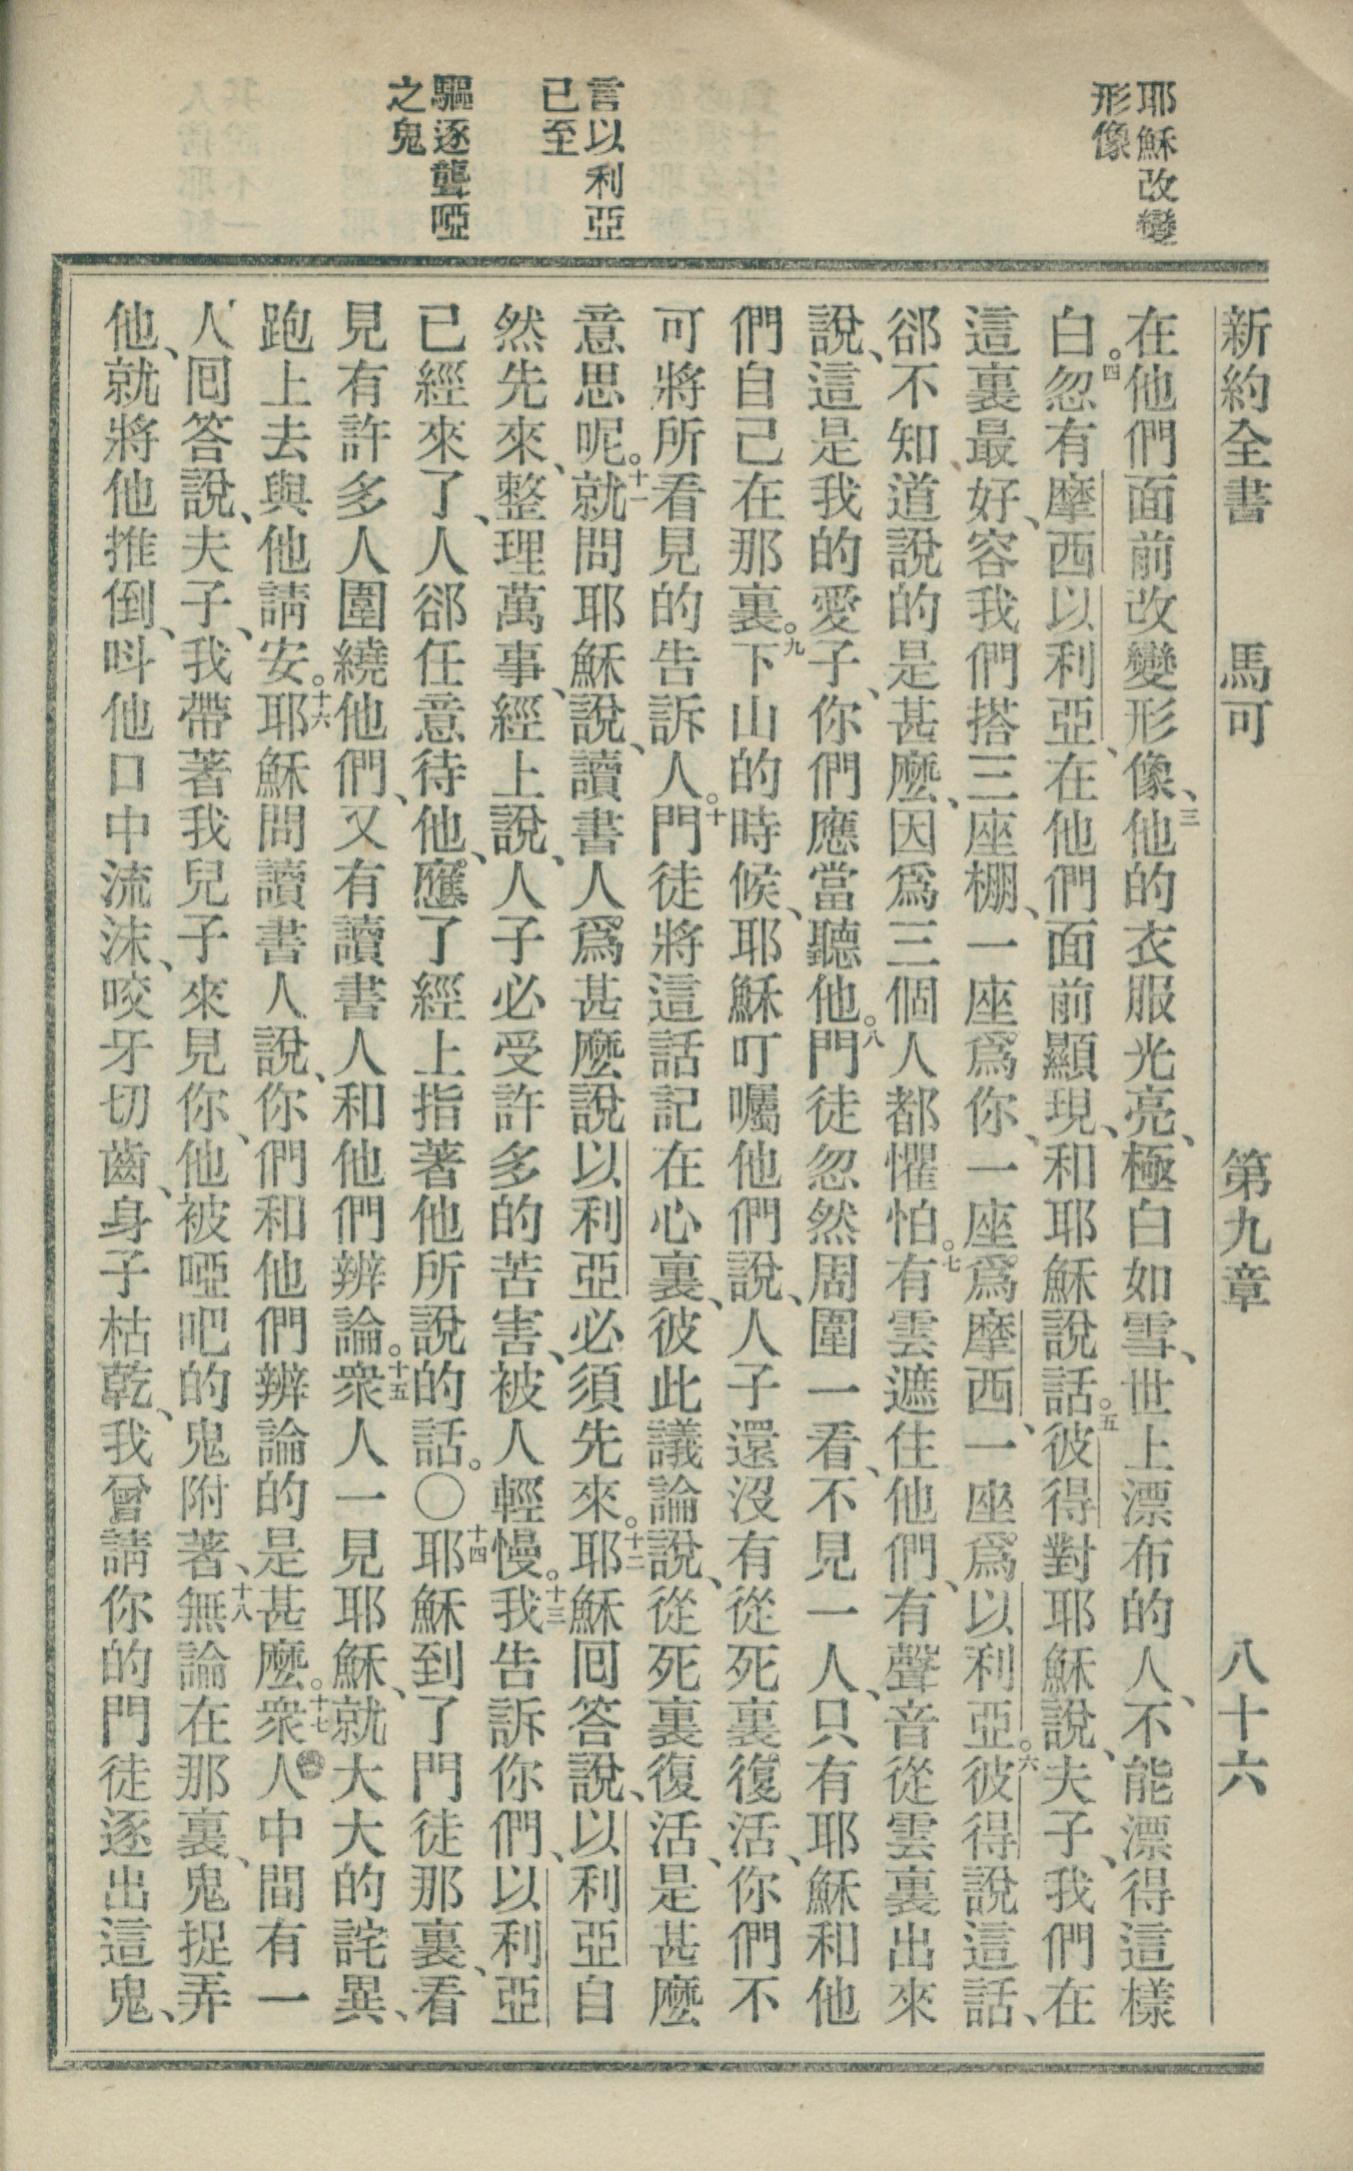 耶穌改變
形像
言以利亞
已至
驅逐聾啞
之鬼
新約全書 馬可 第九章 八十六
在他們面前改變形像、三他的衣服光亮、極白如雪、世上漂布的人、不能漂得這樣
白。四忽有摩西以利亞、在他們面前顯現、和耶穌說話。五彼得對耶穌說、夫子、我們在
這裏最好、容我們搭三座棚、一座爲你、一座爲摩西、一座爲以利亞。六彼得說這話、
郤不知道說的是甚麼、因爲三個人都懼怕。七有雲遮住他們、有聲音從雲裏出來
說、這是我的愛子、你們應當聽他。八門徒忽然周圍一看、不見一人、只有耶穌和他
們自己在那裏。九下山的時候、耶穌叮囑他們說、人子還沒有從死裏復活、你們不
可將所看見的告訴人。十門徒將這話記在心裏、彼此議論說、從死裏復活、是甚麼
意思呢。十一就問耶穌說、讀書人爲甚麼說以利亞必須先來。十二耶穌回答說、以利亞自
然先來、整理萬事、經上說、人子必受許多的苦害、被人輕慢。十三我告訴你們、以利亞
已經來了、人郤任意待他、應了經上指著他所說的話。〇十四耶穌到了門徒那裏、看
見有許多人圍繞他們、又有讀書人和他們辨論。十五衆人一見耶穌、就大大的詫異、
跑上去與他請安。十六耶穌問讀書人說、你們和他們辨論的是甚麼。十七衆人中間有一
人、回答說、夫子、我帶著我兒子來見你、他被啞吧的鬼附著、十八無論在那裏、鬼捉弄
他、就將他推倒、呌他口中流沫、咬牙切齒、身子枯乾、我曾請你的門徒逐出這鬼、